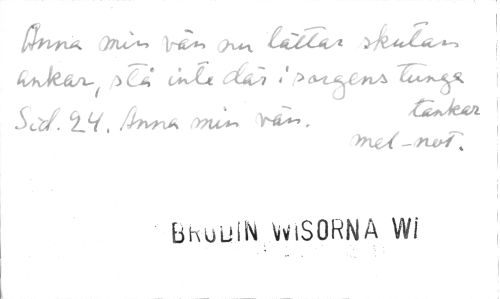 Anna min vän nu lättar skutan
ankar, stå inte där i sorgens tunga
tankar
Sid. 24. Anna min vän.
mel-not.
BRODIN WISORNA WI